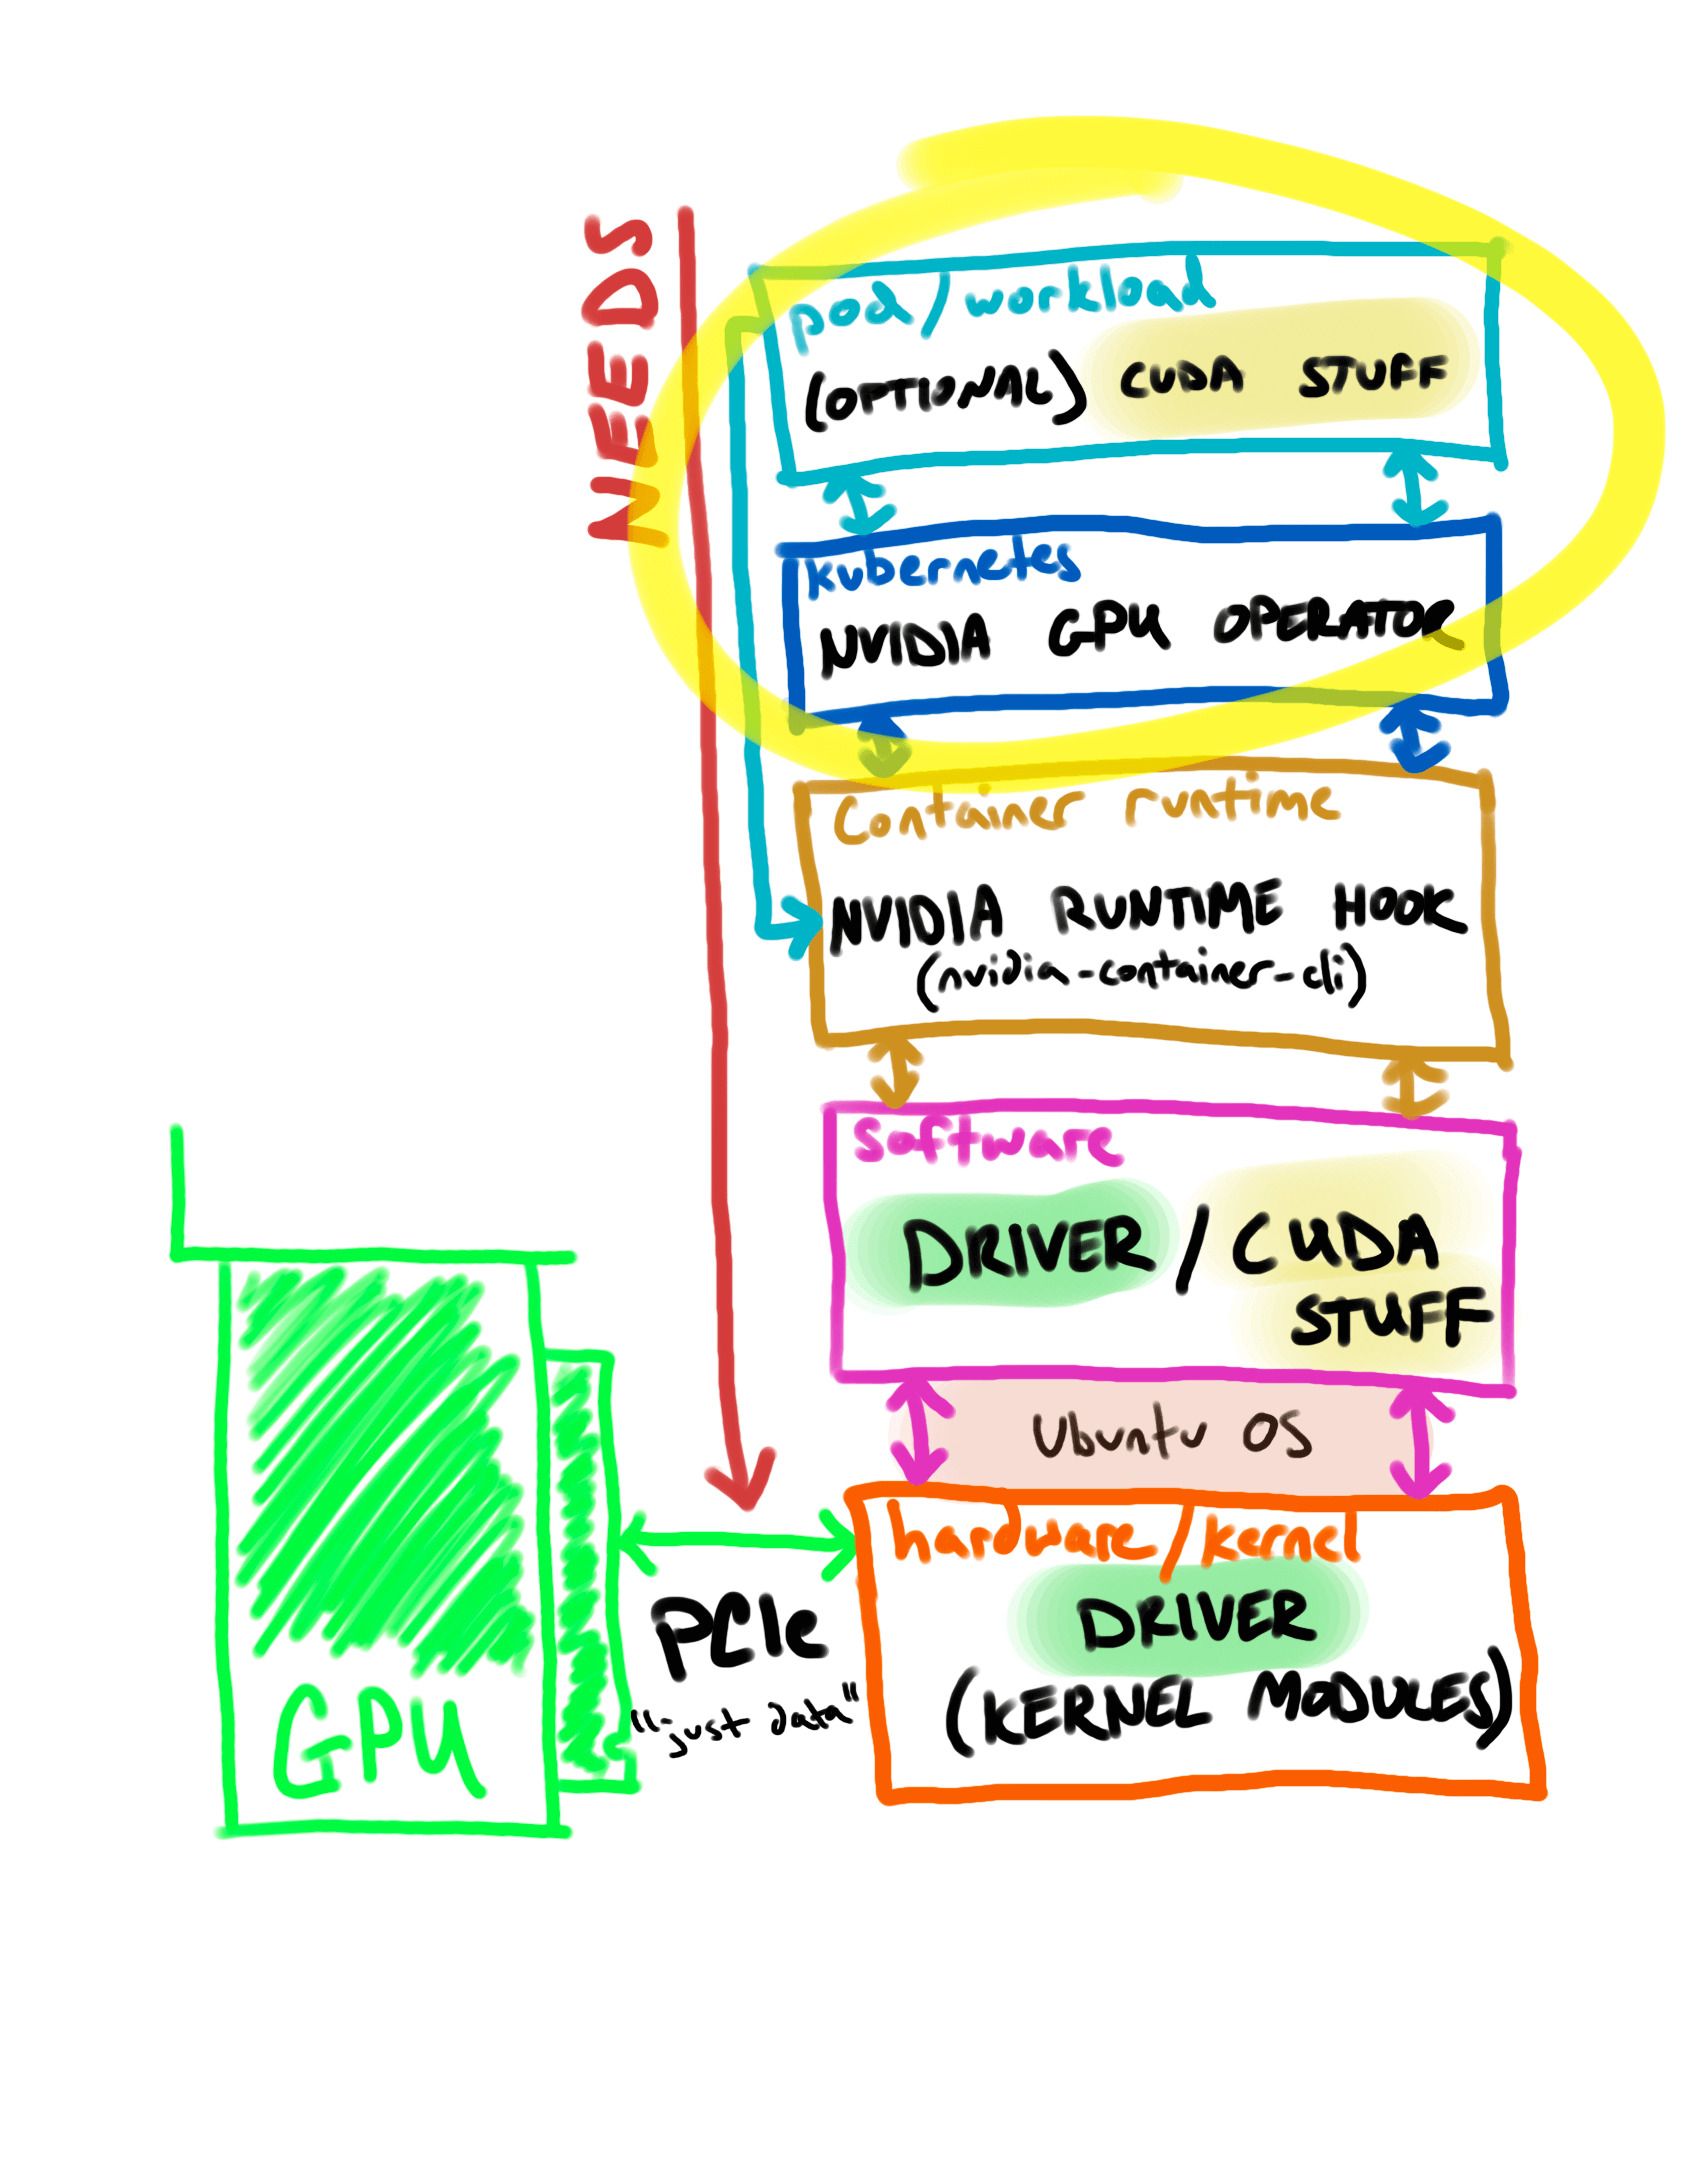 NEEDS
pod/workload
(OPTIONAL) CUDA STUFF
kubernetes
NVIDIA GPU OPERATOR
Container runtime
NVIDIA RUNTIME HOOK
(nvidia-container-cli)
Software
DRIVER / CUDA
STUFF
Ubuntu OS
hardware/kernel
DRIVER
(KERNEL MODULES)
PCIe
"just data"
GPU